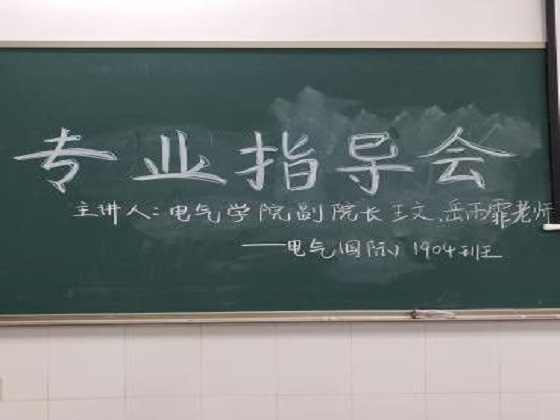 专业指导会
主讲人:电气学院副院长王文、岳雨霏老师
——电气(国际)1904班